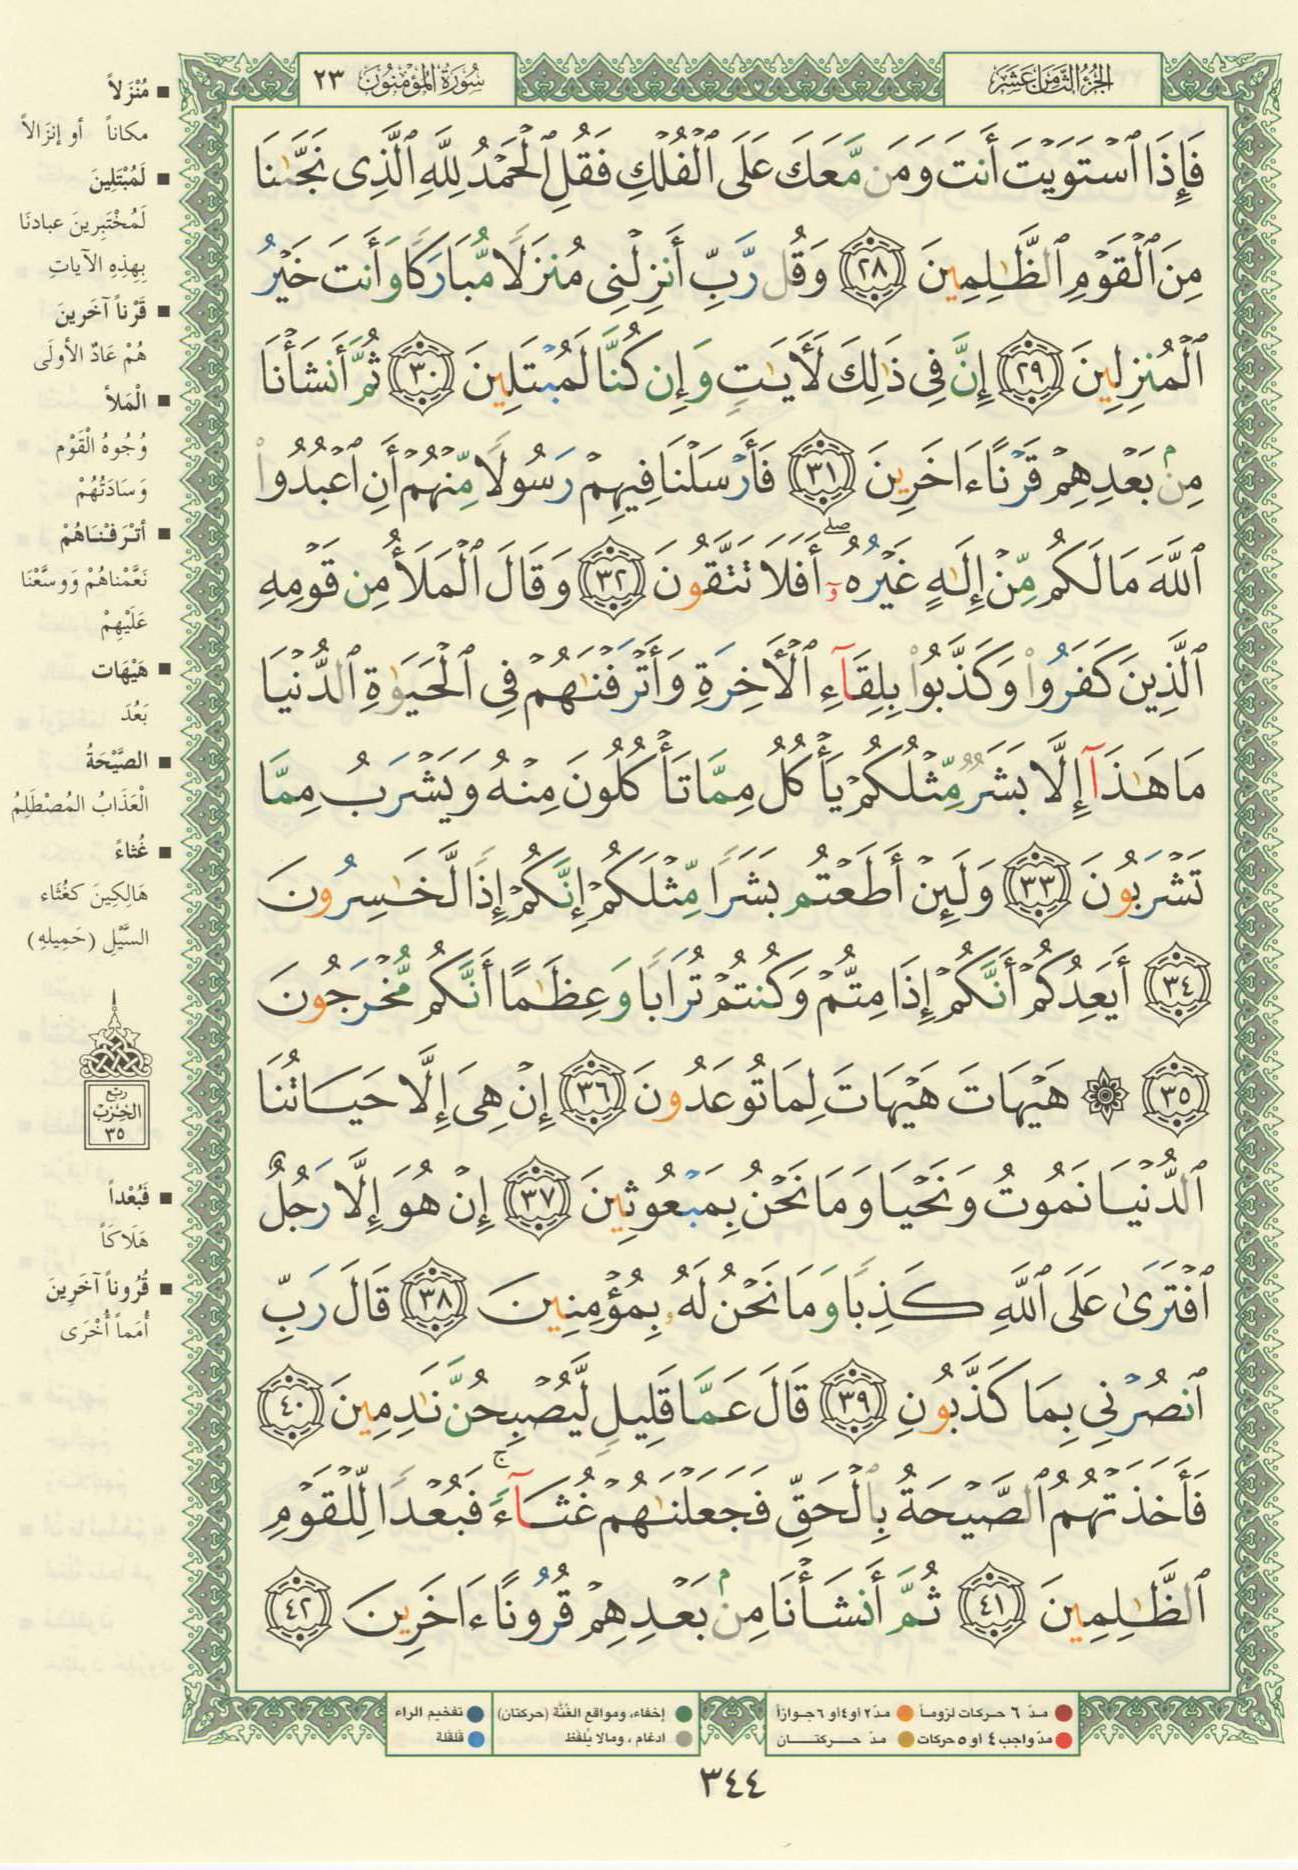 الجزء الثامن عشر
سورة المؤمنون ٢٣
فَإِذَا ٱسْتَوَيْتَ أَنتَ وَمَن مَّعَكَ عَلَى ٱلْفُلْكِ فَقُلِ ٱلْحَمْدُ لِلَّهِ ٱلَّذِى نَجَّىٰنَا
مِنَ ٱلْقَوْمِ ٱلظَّٰلِمِينَ ٢٨ وَقُل رَّبِّ أَنزِلْنِى مُنزَلًا مُّبَارَكًا وَأَنتَ خَيْرُ
ٱلْمُنزِلِينَ ٢٩ إِنَّ فِى ذَٰلِكَ لَءَايَٰتٍ وَإِن كُنَّا لَمُبْتَلِينَ ٣٠ ثُمَّ أَنشَأْنَا
مِنۢ بَعْدِهِمْ قَرْنًا ءَاخَرِينَ ٣١ فَأَرْسَلْنَا فِيهِمْ رَسُولًا مِّنْهُمْ أَنِ ٱعْبُدُوا۟
ٱللَّهَ مَا لَكُم مِّنْ إِلَٰهٍ غَيْرُهُۥٓ ۖ أَفَلَا تَتَّقُونَ ٣٢ وَقَالَ ٱلْمَلَأُ مِن قَوْمِهِ
ٱلَّذِينَ كَفَرُوا۟ وَكَذَّبُوا۟ بِلِقَآءِ ٱلْءَاخِرَةِ وَأَتْرَفْنَٰهُمْ فِى ٱلْحَيَوٰةِ ٱلدُّنْيَا
مَا هَٰذَآ إِلَّا بَشَرٌ مِّثْلُكُمْ يَأْكُلُ مِمَّا تَأْكُلُونَ مِنْهُ وَيَشْرَبُ مِمَّا
تَشْرَبُونَ ٣٣ وَلَئِنْ أَطَعْتُم بَشَرًا مِّثْلَكُمْ إِنَّكُمْ إِذًا لَّخَٰسِرُونَ
٣٤ أَيَعِدُكُمْ أَنَّكُمْ إِذَا مِتُّمْ وَكُنتُمْ تُرَابًا وَعِظَٰمًا أَنَّكُم مُّخْرَجُونَ
٣٥ ۞ هَيْهَاتَ هَيْهَاتَ لِمَا تُوعَدُونَ ٣٦ إِنْ هِىَ إِلَّا حَيَاتُنَا
ٱلدُّنْيَا نَمُوتُ وَنَحْيَا وَمَا نَحْنُ بِمَبْعُوثِينَ ٣٧ إِنْ هُوَ إِلَّا رَجُلٌ
ٱفْتَرَىٰ عَلَى ٱللَّهِ كَذِبًا وَمَا نَحْنُ لَهُۥ بِمُؤْمِنِينَ ٣٨ قَالَ رَبِّ
ٱنصُرْنِى بِمَا كَذَّبُونِ ٣٩ قَالَ عَمَّا قَلِيلٍ لَّيُصْبِحُنَّ نَٰدِمِينَ ٤٠
فَأَخَذَتْهُمُ ٱلصَّيْحَةُ بِٱلْحَقِّ فَجَعَلْنَٰهُمْ غُثَآءً ۚ فَبُعْدًا لِّلْقَوْمِ
ٱلظَّٰلِمِينَ ٤١ ثُمَّ أَنشَأْنَا مِنۢ بَعْدِهِمْ قُرُونًا ءَاخَرِينَ ٤٢
■ مُنْزَلاً
مكاناً أو إنزالاً
■ لَمُبْتَلِينَ
لَمُخْتَبِرينَ عبادنَا
بِهذِهِ الآياتِ
■ قَرْناً آخَرينَ
هُمْ عَادٌ الأولَى
■ الْمَلأُ
وُجُوهُ الْقَوْم
وَسَادَتُهُمْ
■ أتْرَفْنَاهُمْ
نَعَّمْناهُمْ وَوسَّعْنَا
عَلَيْهِمْ
■ هَيْهَات
بَعُدَ
■ الصَّيْحَةُ
الْعَذَابُ المُصْطَلِمُ
■ غُثاءً
هَالِكِينَ كغُثَاء
السَّيْلِ (حَمِيلهِ)
ربع
الحزب
٣٥
■ فَبُعْداً
هَلَاكَاً
■ قُرُوناً آخَرِينَ
أُمَماً أُخْرَى
مدّ ٦ حركات لزوماً
مدّ ٢ أو ٤ أو ٦ جوازاً
مدّ واجب ٤ أو ٥ حركات
مدّ حركتان
إخفاء، ومواقع الغُنَّة (حركتان)
ادغام ، ومالا يُلفَظ
تفخيم الراء
قلقلة
٣٤٤